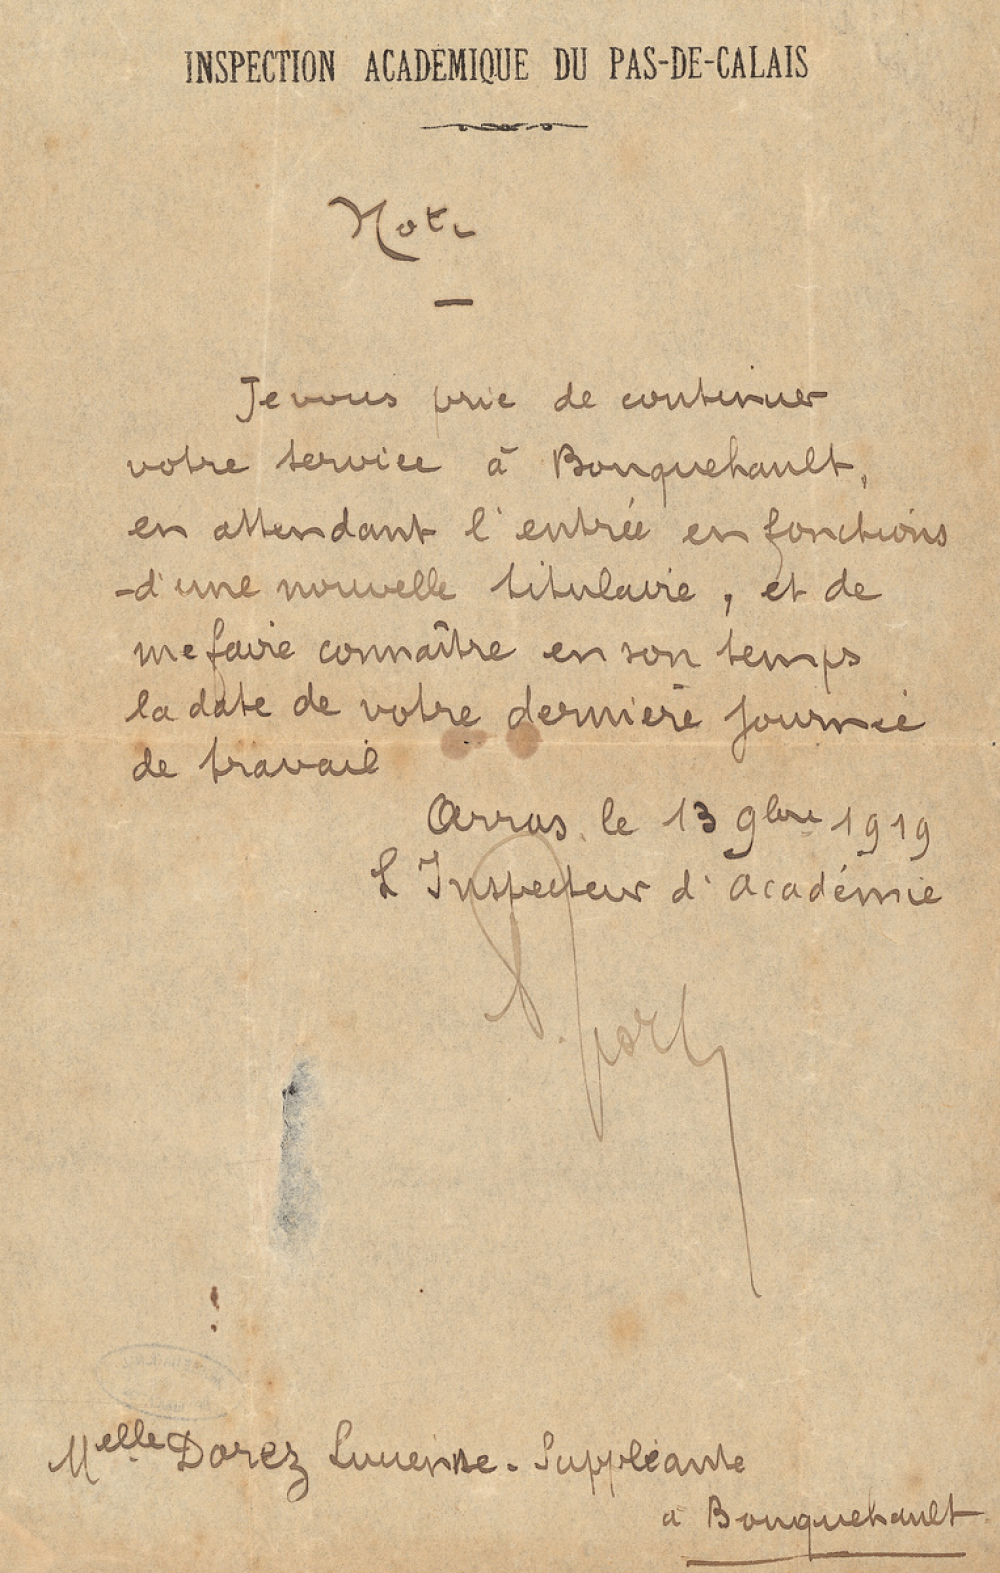 INSPECTION ACADÉMIQUE DU PAS-DE-CALAIS
Note
Je vous prie de continuer
votre service à Bouquehault,
en attendant l'entrée en fonctions
d'une nouvelle titulaire, et de
me faire connaître en son temps
la date de votre dernière journée
de travail
Arras, le 13 9bre 1919
L'Inspecteur d'Académie
Melle Dorez Lucienne - Suppléante
à Bouquehault